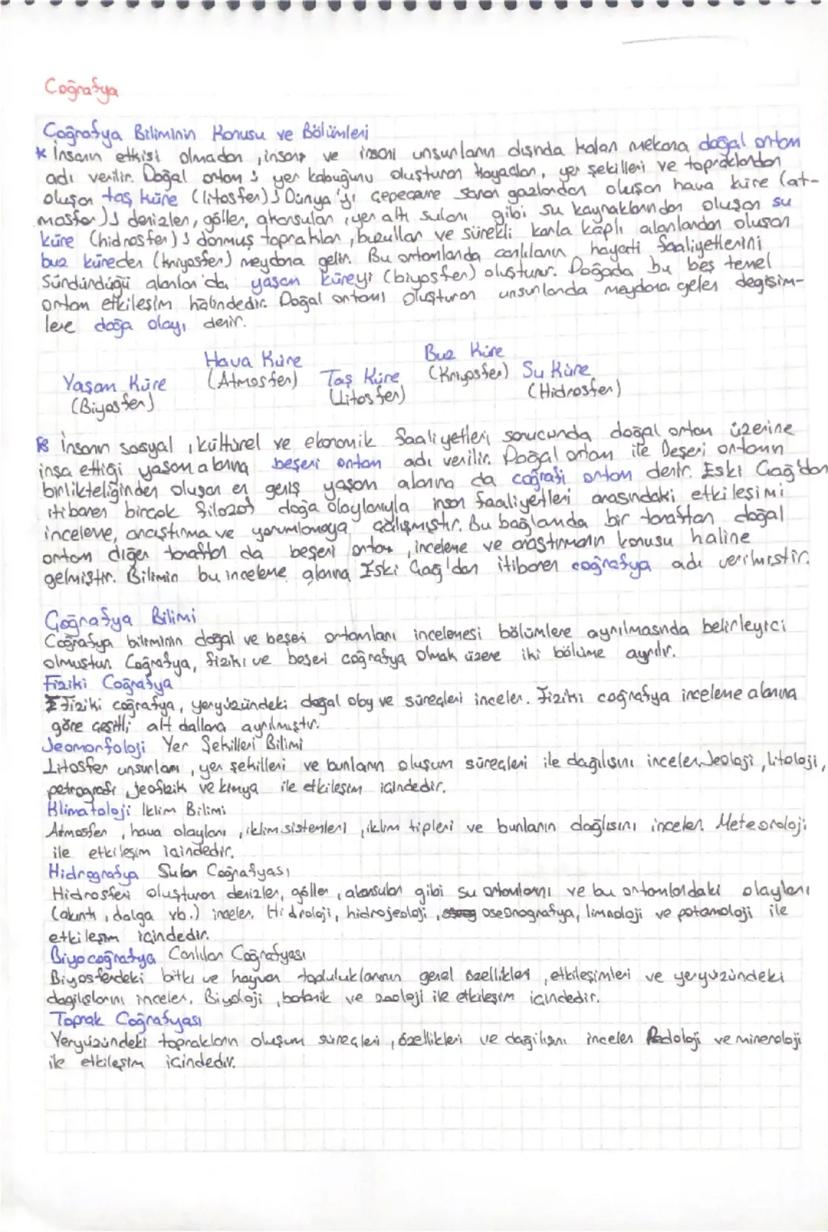 Coğrafya
Coğrafya Biliminin Konusu ve Bölümleri
* İnsanın etkisi olmadan, insanı ve insani unsurların dışında kalan mekana doğal ortam
adı verilir. Doğal ortam; yer kabuğunu oluşturan kayaçlar, yer şekilleri ve topraklardan
oluşan taş küre (litosfer); Dünya'yı çepeçevre saran gazlardan oluşan hava küre (at-
mosfer); denizler, göller, akarsular, yer altı suları gibi su kaynaklarından oluşan su
küre (hidrosfer); donmuş topraklar, buzullar ve sürekli karla kaplı alanlardan oluşan
buz küreden (kriyosfer) meydana gelir. Bu ortamlarda canlıların hayati faaliyetlerini
sündündüğü alanlar'da yaşam küreyi (biyosfer) oluşturur. Doğada bu beş temel
ortam etkileşim halindedir. Doğal ortamı oluşturan unsurlarda meydana gelen değişim-
lere doğa olayı denir.
Yaşam Küre Hava Küre Taş Küre Buz Küre Su Küre
(Biyosfer) (Atmosfer) (Litosfer) (Kriyosfer) (Hidrosfer)
İnsanın sosyal, kültürel ve ekonomik faaliyetleri sonucunda doğal ortam üzerine
inşa ettiği yaşam alanına beşeri ortam adı verilir. Doğal ortam ile Beşeri ortamın
birlikteliğinden oluşan en geniş yaşam alanına da coğrafi ortam denir. Eski Çağ'dan
itibaren birçok filozof doğa olaylarıyla insan faaliyetleri arasındaki etkileşimi
inceleme, araştırma ve yorumlamaya çalışmıştır. Bu bağlamda bir taraftan doğal
ortam diğer taraftan da beşeri ortam, inceleme ve araştırmanın konusu haline
gelmiştir. Bilimin bu inceleme alanına Eski Çağ'dan itibaren coğrafya adı verilmiştir.
Coğrafya Bilimi
Coğrafya biliminin doğal ve beşeri ortamları incelemesi bölümlere ayrılmasında belirleyici
olmuştur. Coğrafya, fiziki ve beşeri coğrafya olmak üzere iki bölüme ayrılır.
Fiziki Coğrafya
Fiziki coğrafya, yeryüzündeki doğal olay ve süreçleri inceler. Fiziki coğrafya inceleme alanına
göre çeşitli alt dallara ayrılmıştır.
Jeomorfoloji Yer Şekilleri Bilimi
Litosfer unsurları, yer şekilleri ve bunların oluşum süreçleri ile dağılışını inceler. Jeoloji, litoloji,
petrografi, jeofizik ve kimya ile etkileşim içindedir.
Klimatoloji İklim Bilimi
Atmosfer, hava olayları, iklim sistemleri, iklim tipleri ve bunların dağılışını inceler. Meteoroloji
ile etkileşim içindedir.
Hidrografya Sular Coğrafyası
Hidrosferi oluşturan denizler, göller, akarsular gibi su ortamlarını ve bu ortamlardaki olayları
(akıntı, dalga vb.) inceler. Hidroloji, hidrojeoloji, oseonografya, limnoloji ve potamoloji ile
etkileşim içindedir.
Biyocoğrafya Canlılar Coğrafyası
Biyosferdeki bitki ve hayvan topluluklarının genel özellikleri, etkileşimleri ve yeryüzündeki
dağılışlarını inceler. Biyoloji, botanik ve zooloji ile etkileşim içindedir.
Toprak Coğrafyası
Yeryüzündeki toprakların oluşum süreçleri, özellikleri ve dağılışını inceler. Pedoloji ve mineroloji
ile etkileşim içindedir.